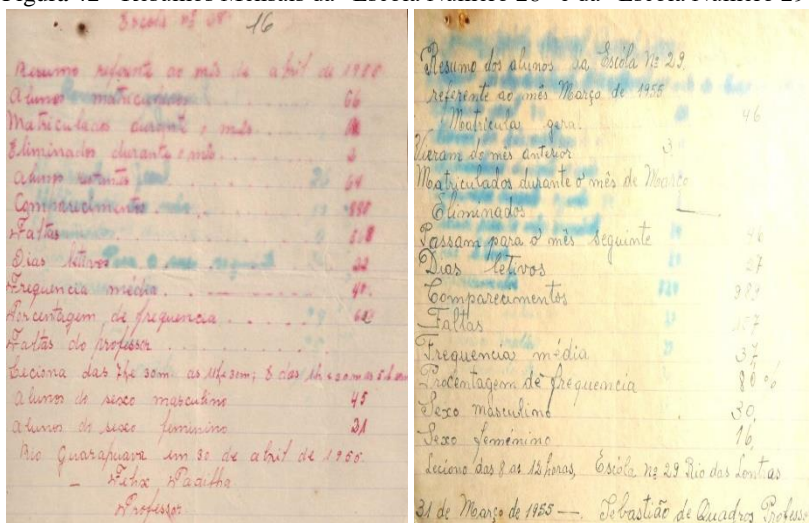 Figura 42 - Resumos Mensais da "Escola Número 28" e da "Escola Número 29"
Escola nº 28 16
Resumo referente ao mês de abril de 1955
Alunos matriculados 66
Matriculados durante o mês
Eliminados durante o mês 2
Alunos restantes 64
Comparecimentos 880
Faltas 528
Dias letivos 22
Frequencia média 40
Porcentagem de frequencia
Faltas do professor
Leciona das 7he 30m as
Alunos do sexo masculino 45
Alunos do sexo feminino 21
Rio Guarapuava em 30 de abril de 1955
Felix Padilha
Professor
Resumo dos alunos da Escóla Nº 29,
referente ao mês Março de 1955
Matrícula geral 46
Vieram do mês anterior
Matriculados durante o mês de Março
Eliminados
Passam para o mês seguinte 46
Dias letivos 27
Comparecimentos 989
Faltas 107
Frequencia média 37,
Procentagem de frequencia 80%
Sexo masculino 30,
Sexo femenino 16,
Leciono das 8 as 12 horas, Escóla nº 29 Rio das Lontras
31 de Março de 1955 — Sebastião de Quadros Professor